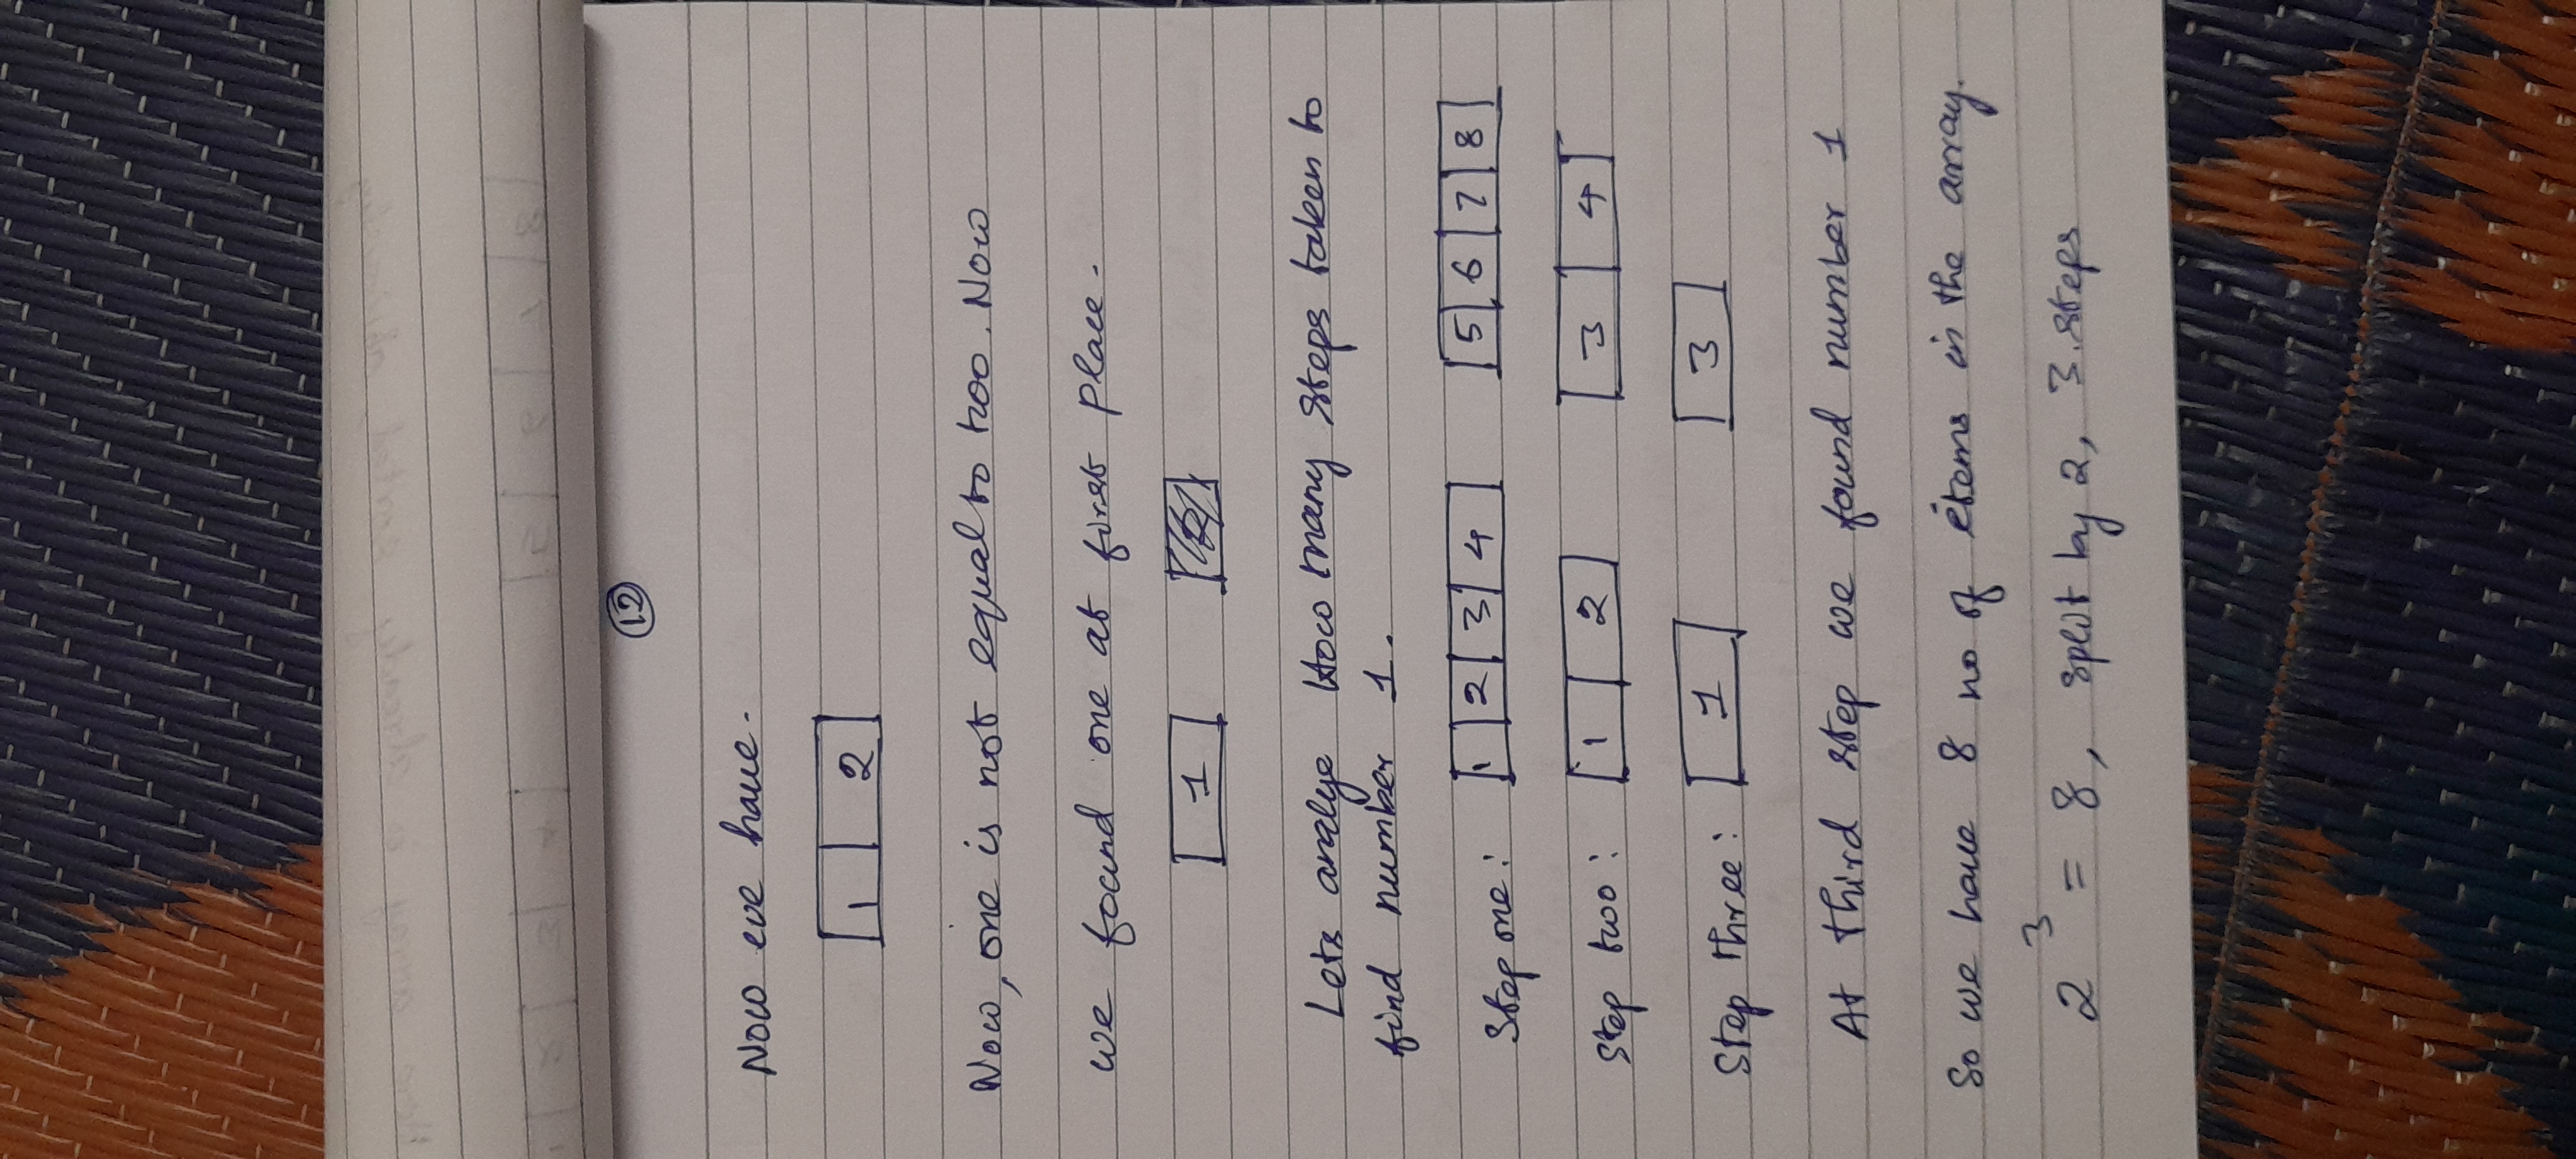 12
Now we have.
1 2
Now, one is not equal to two. Now
we found one at first place.
1
Lets analye How many steps taken to
find number 1.
Step one: 1 2 3 4 5 6 7 8
Step two: 1 2 3 4
Step three: 1 3
At third step we found number 1
So we have 8 no of items in the array.
2³ = 8, split by 2, 3 steps